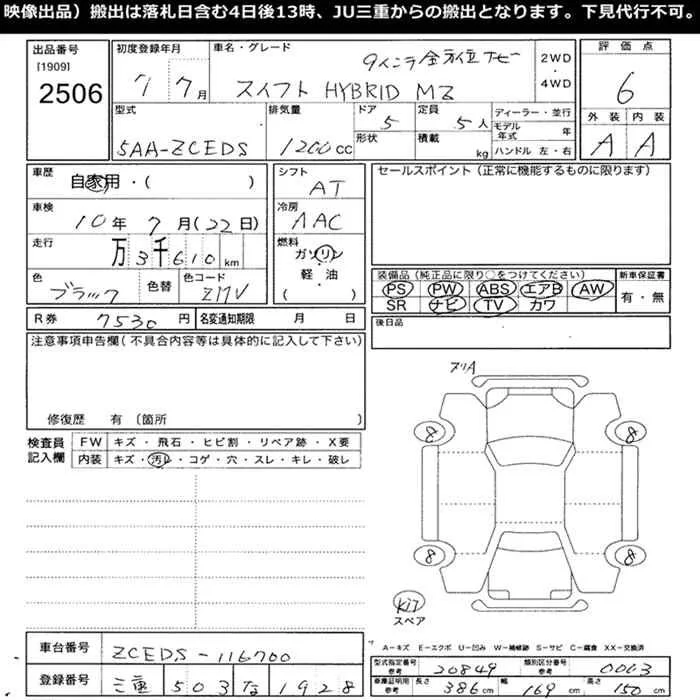 映像出品）搬出は落札日含む4日後13時、JU三重からの搬出となります。下見代行不可。
出品番号
[1909]
2506
初度登録年月
7 7月
車名・グレード
9インチ全方位ナビ
スイフト HYBRID MZ
2WD
・
4WD
評価点
6
外装 内装
A A
型式
5AA-ZCEDS
排気量
1200cc
ドア
5
形状
定員
5人
積載
kg
ディーラー・並行
モデル年式 年
ハンドル 左・右
車歴
自家用・( )
車検
10年7月(22日)
走行
万3千610km
色
ブラック
色替
色コード
ZMV
シフト
AT
冷房
AAC
燃料
ガソリン
軽・油
( )
セールスポイント（正常に機能するものに限ります）
装備品（純正品に限り○をつけてください）
PS PW ABS エアB AW
SR ナビ TV カワ
新車保証書
有・無
後日品
R券 7530円
名変通知期限 月 日
注意事項申告欄（不具合内容等は具体的に記入して下さい）
修復歴 有〔箇所 〕
検査員記入欄
FW キズ・飛石・ヒビ割・リペア跡・X要
内装 キズ・汚レ・コゲ・穴・スレ・キレ・破レ
8 8
8 8
Kit
スペア
車台番号
ZCEDS-116700
登録番号
三重 503 な 1928
A－キズ E－エクボ U－凹み W－補修跡 S－サビ C－腐食 XX－交換済
型式指定番号 参考 20849
類別区分番号 参考 0003
車庫証明用 参考 長さ 386cm 幅 169cm 高さ 150cm